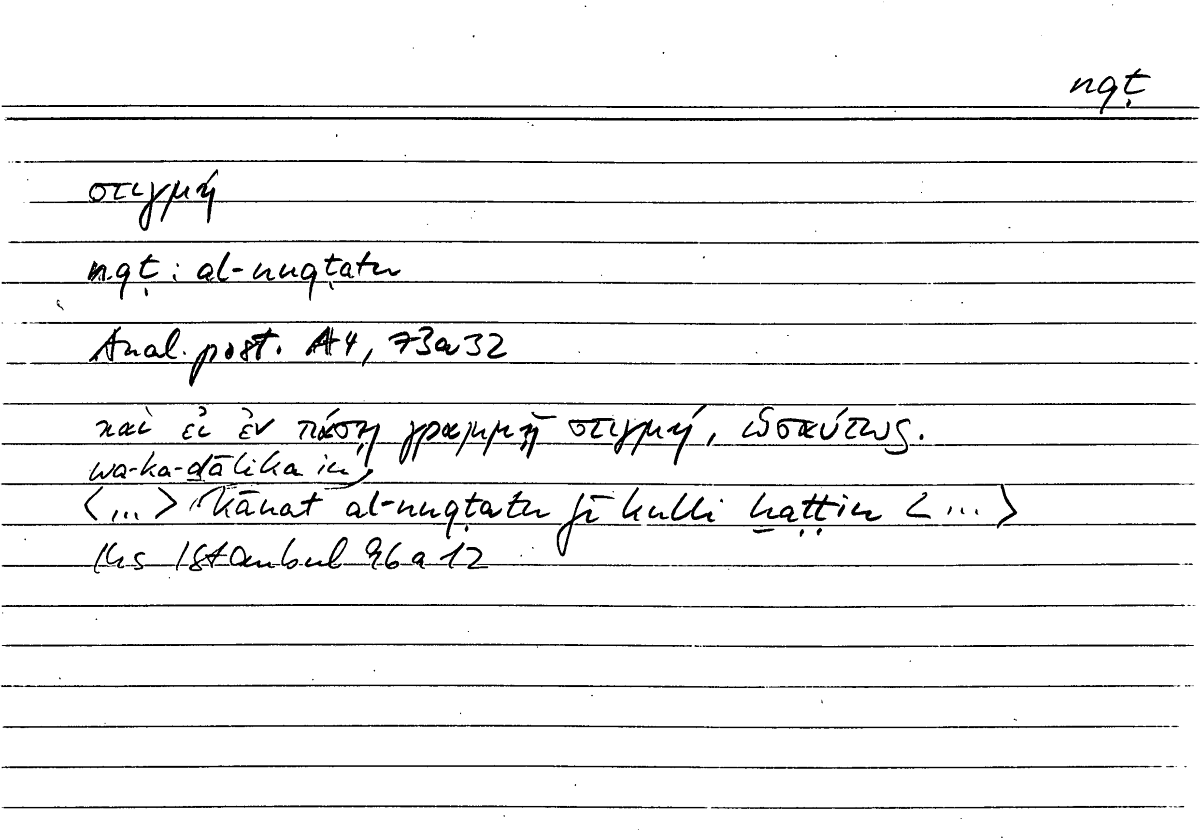 nqṭ
στιγμή
nqṭ : al-nuqṭatu
Anal. post. A4, 73a32
καὶ εἰ ἐν πάσῃ γραμμῇ στιγμή, ὡσαύτως.
wa-ka-ḏālika in
<...> kānat al-nuqṭatu fī kulli ḫaṭṭin <...>
Hs Istanbul 96a12